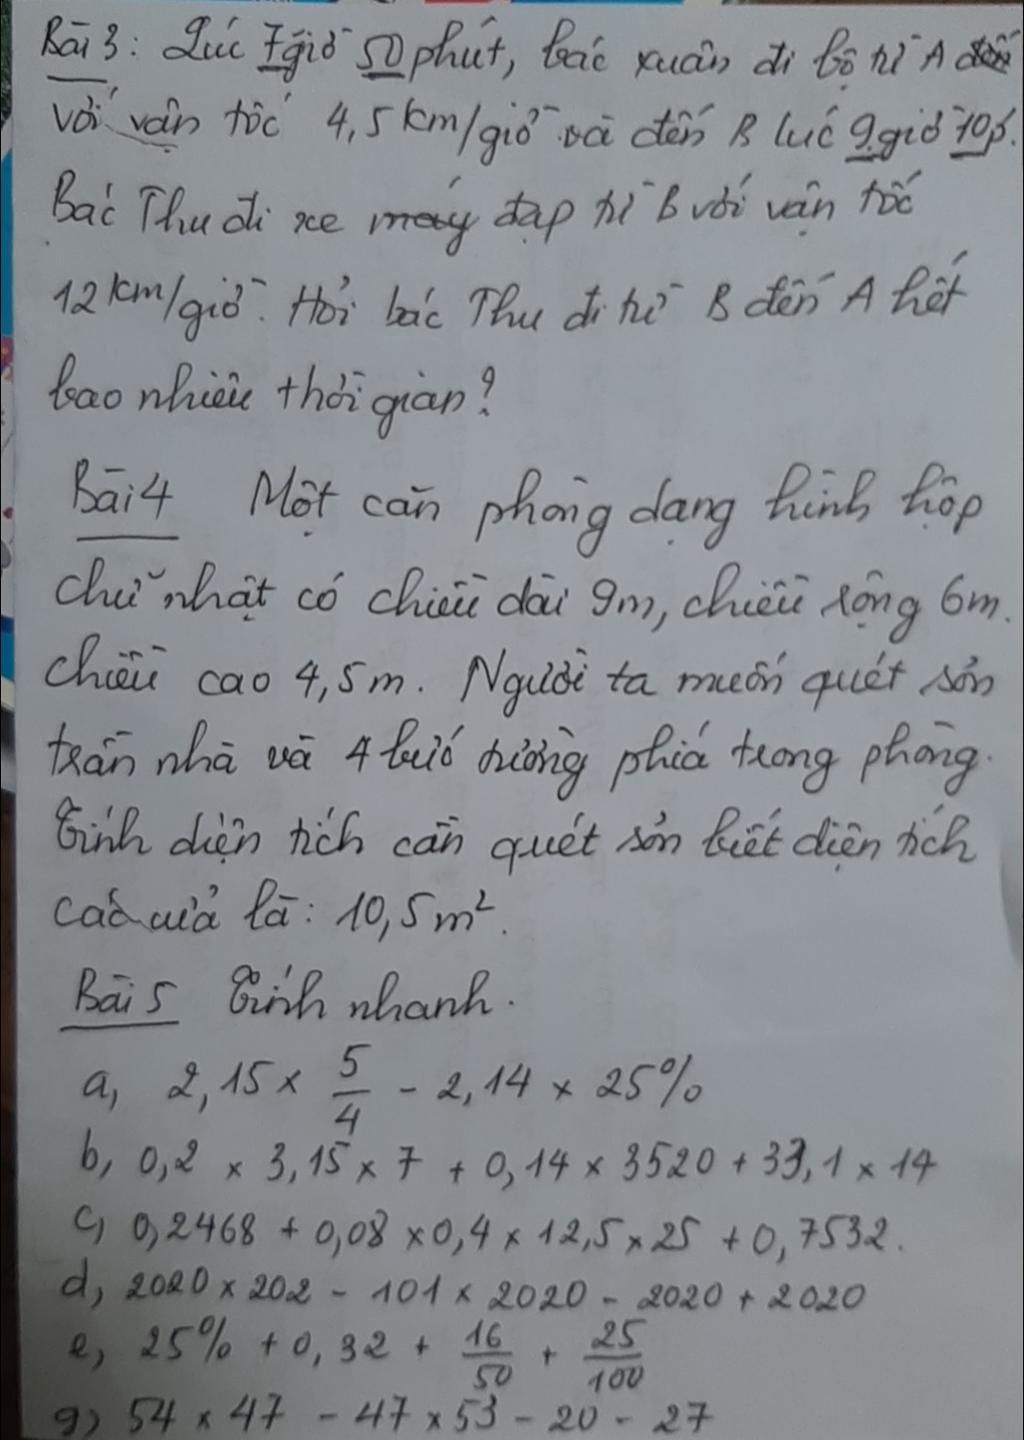 Bài 3: Lúc 7 giờ 50 phút, bác xuân đi bộ từ A
với vận tốc 4,5 km/giờ và đến B lúc 9 giờ 10p.
Bác Thu đi xe đạp từ B với vận tốc
12 km/giờ. Hỏi bác Thu đi từ B đến A hết
bao nhiêu thời gian?
Bài 4 Một căn phòng dạng hình hộp
chữ nhật có chiều dài 9m, chiều rộng 6m.
chiều cao 4,5m. Người ta muốn quét sơn
trần nhà và 4 bức tường phía trong phòng.
Tính diện tích cần quét sơn biết diện tích
các cửa là: 10,5m².
Bài 5 Tính nhanh.
a, 2,15 × 5/4 - 2,14 × 25%
b, 0,2 × 3,15 × 7 + 0,14 × 3520 + 33,1 × 14
c, 0,2468 + 0,08 × 0,4 × 12,5 × 25 + 0,7532.
d, 2020 × 202 - 101 × 2020 - 2020 + 2020
e, 25% + 0,32 + 16/50 + 25/100
g) 54 × 47 - 47 × 53 - 20 - 27